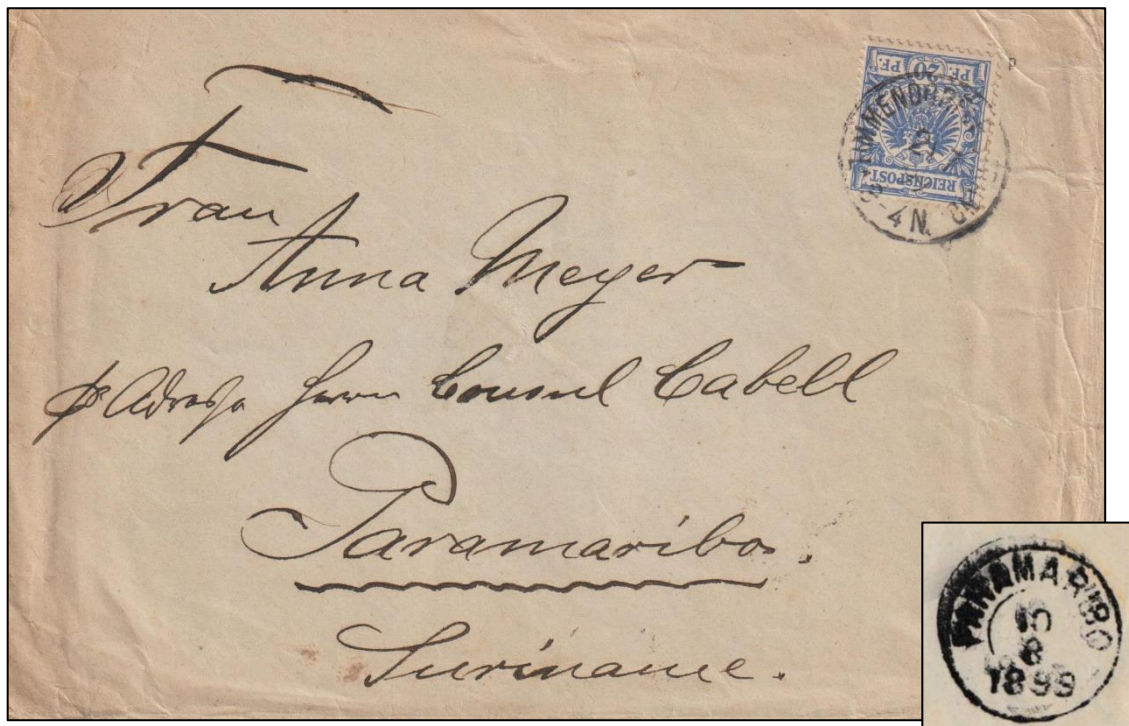 PF. 20 PF.
REICHSPOST
3-4 N.
Frau
Anna Meyer
pr Adresse Herrn Consul Cabell
Paramaribo.
Suriname.
PARAMARIBO
10
8
1899